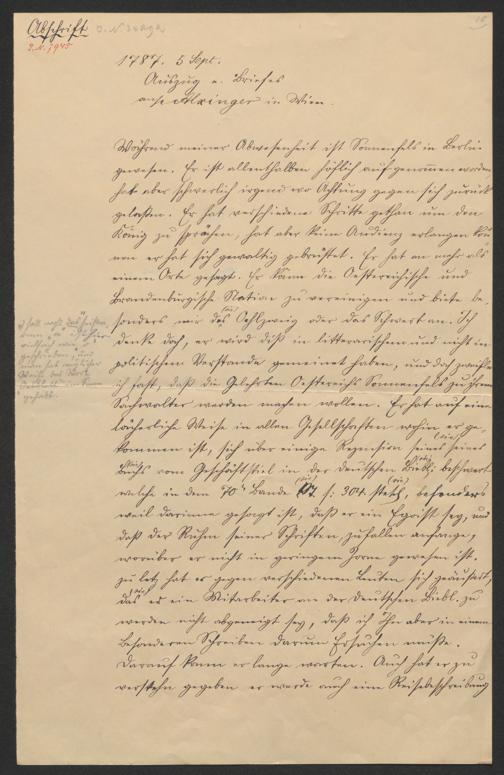 Abschrift
I. N. 34292
I. N. 7945
16
1787. 5 Sept.
Auszug e. Briefes
an Alxinger in Wien.
Während meiner Abwesenheit ist Sonnenfels in Berlin
gewesen. Er ist allenthalben höflich aufgenommen worden,
hat aber schwerlich irgend wo Achtung gegen sich zurück
gelaßen. Er hat verschiedene Schritte gethan um den
König zu sprechen, hat aber keine Audienz erlangen kön
nen er hat sich gewaltig gebrüstet. Er hat an mehr als
einem Orte gesagt. Er käme die Oestereichische und
Brandenburgische Nation zu vereinigen und biete be-
sonders mir das Oehlzweig oder das Schwert an. Ich
denke doch, er wird dieß in litterarischen und nicht im
politischen Verstande gemeinet haben, und doch zweifle
ich fast, daß die Gelehrten Oestereichs Sonnenfels zu ihrem
Sachwalter werden machen wollen. Er hat auf eine
lächerliche Weise in allen Gesellschaften wohin er ge-
kommen ist, sich über einige Rezension seines
Buchs vom Geschäftstiel in der deutschen Bibl. beschwert
welche in dem 70 Bande S: 304. steht, besonders
weil darinne gesagt ist, daß er ein Egoist sey, und
daß der Ruhm seiner Schriften zu fallen anfange,
worüber er nicht in geringem Zorne gewesen ist.
Zu letz hat er gegen verschiedenen Leuten sich geäusert,
das er ein Mitarbeiter an der deutschen Bibl. zu
werden nicht abgeneigt sey, daß ich ihn aber in einem
besonderen Schreiben darum Ersuchen müßte.
Darauf kann er lange warten. Auch hat er zu
verstehn gegeben er werde auch eine Reisebeschreibung